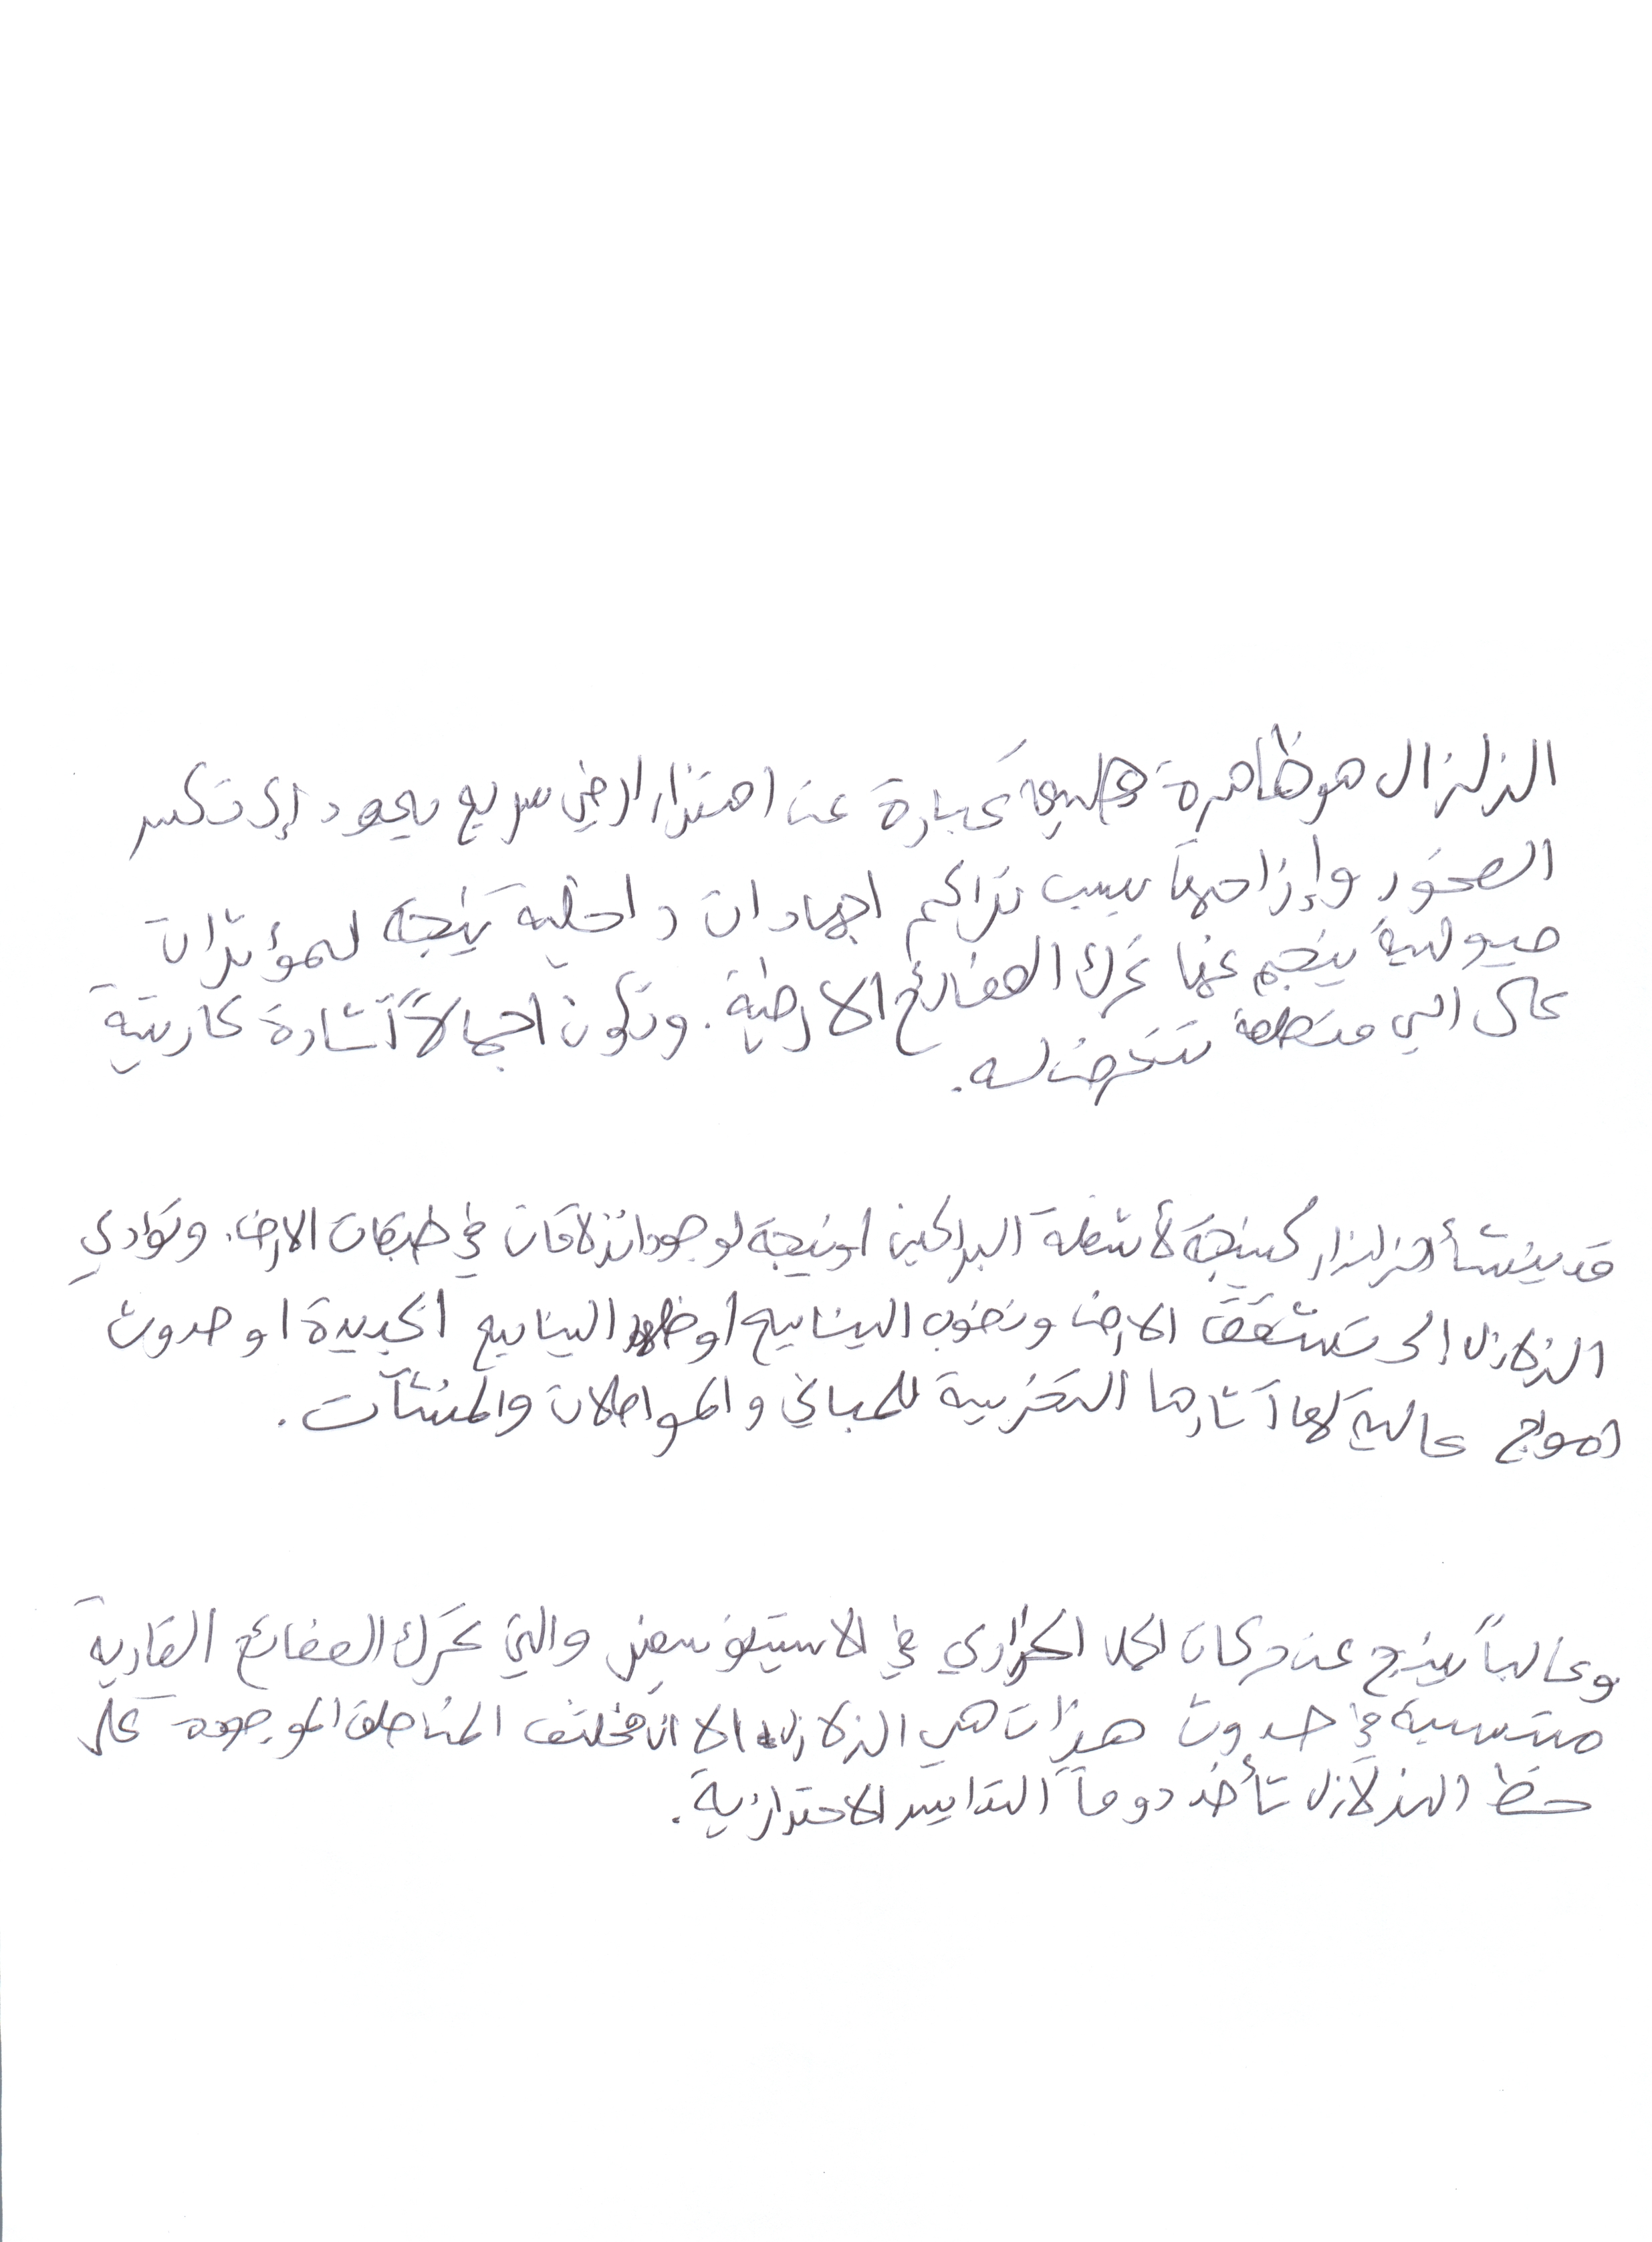 الزلزال هو ظاهرة طبيعية عبارة عن اهتزاز ارضي سريع يعود إلى تكسر
الصخور وإزاحتها بسبب تراكم اجهادات داخلية نتيجة لمؤثرات
جيولوجية ينجم عنها تحرك الصفائح الارضية. وتكون اجمالاً آثاره كارثية
على اي منطقة تتعرض له.
قد ينشأ الزلزال كنتيجة لأنشطة البراكين او نتيجة لوجود انزلاقات في طبقات الارض. وتؤدي
الزلازل إلى تشقق الارض ونضوب الينابيع او ظهور الينابيع الجديدة او حدوث
امواج عالية لها آثارها التخريبية للمباني والمواصلات والمنشآت.
وغالباً ينتج عن حركات الحمل الحراري في الاسينوسفير والتي تحرك الصفائح القارية
متسببة في حدوث هزات هي الزلازل الا ان مختلف المناطق الموجودة على
خط الزلازل تأخذ دوماً التدابير الاحترازية.